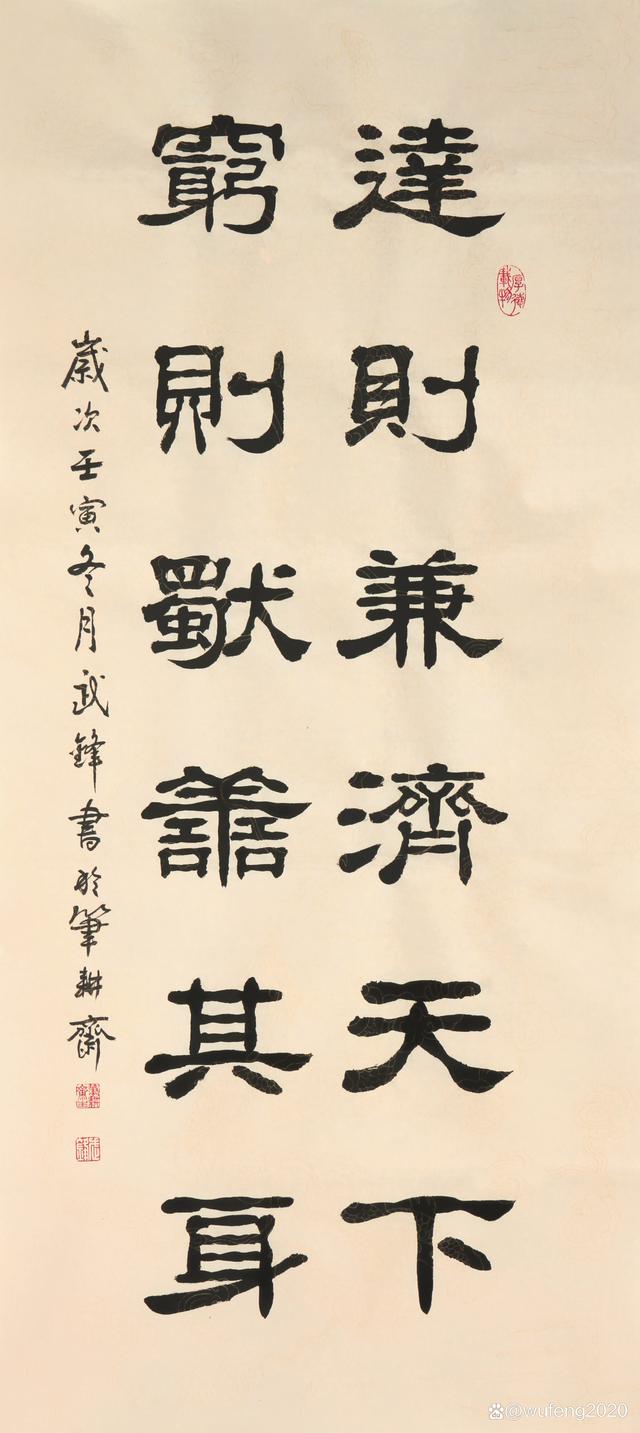 達則兼濟天下
窮則獨譱其身
歲次壬寅冬月武鋒書於筆耕齋
厚德載物
@wufeng2020